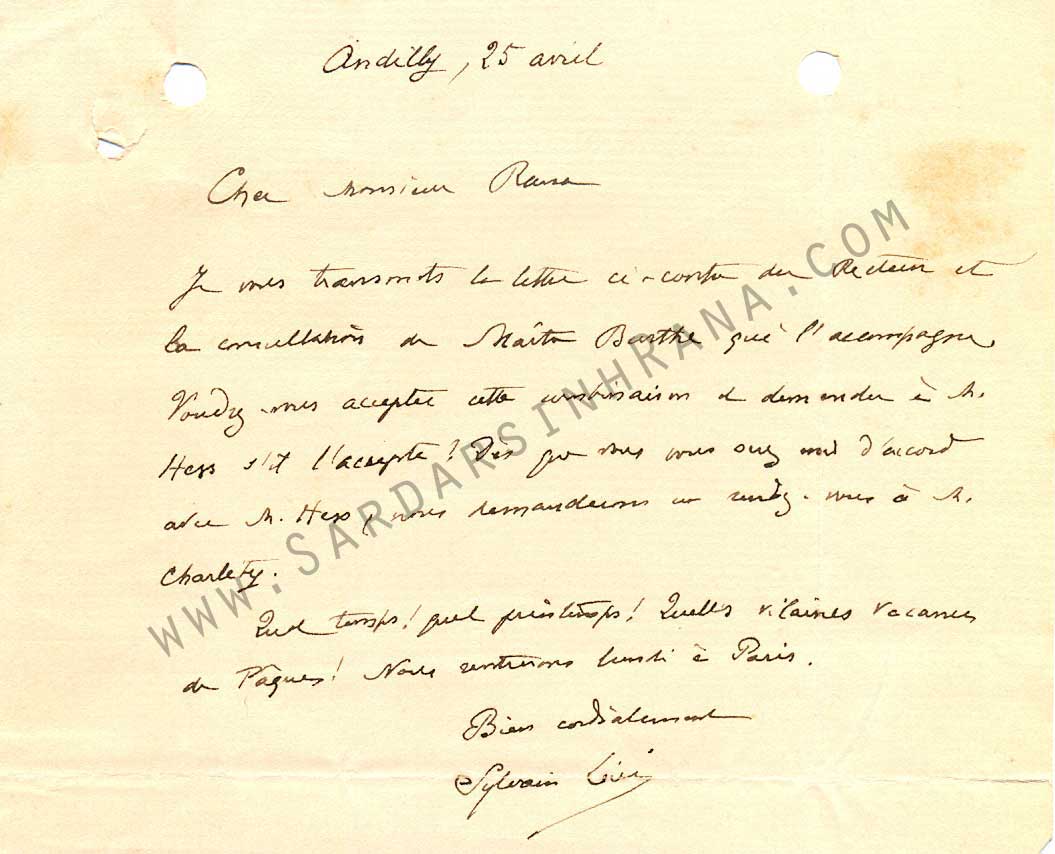 Andilly, 25 avril
Cher Monsieur Rana
Je vous transmets la lettre ci-contre du Recteur et
la consultation de Maître Barthe qui l'accompagne.
Voudrez-vous accepter cette combinaison et demander à M.
Hess s'il l'accepte? Dès que vous vous serez mis d'accord
avec M. Hess, nous demanderons un rendez-vous à M.
Charlety.
Quel temps! quel printemps! Quelles vilaines vacances
de Pâques! Nous rentrerons lundi à Paris.
Bien cordialement
Sylvain Lévi
WWW.SARDARSINHRANA.COM